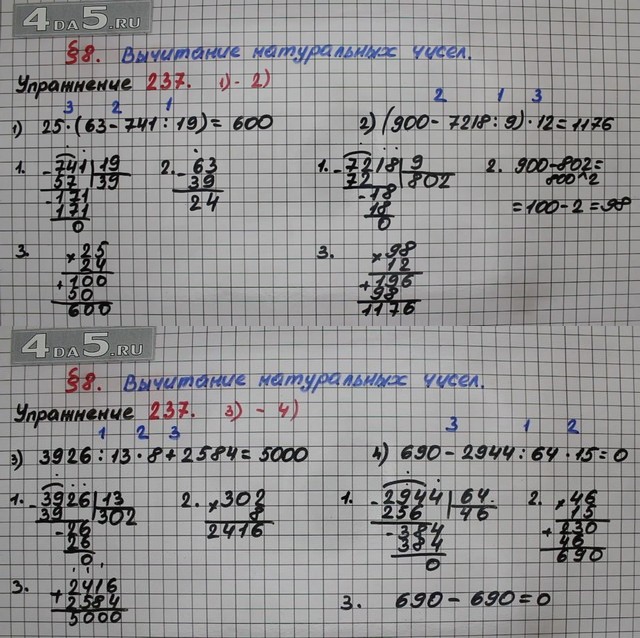 4DA5.RU
§8. Вычитание натуральных чисел.
Упражнение 237. 1) - 2)
3 2 1
1) 25·(63-741:19)=600
2 1 3
2) (900-7218:9)·12=1176
1. -741|19
57 |39
-171
171
0
2. -63
39
24
1. -7218|9
72 |802
-18
18
0
2. 900-802=
800^2
=100-2=98
3. ×25
24
+100
50
600
3. ×98
12
+196
98
1176
4DA5.RU
§8. Вычитание натуральных чисел.
Упражнение 237. 3) - 4)
1 2 3
3) 3926:13·8+2584=5000
3 1 2
4) 690-2944:64·15=0
1. -3926|13
39 |302
-26
26
0
2. ×302
8
2416
1. -2944|64
256 |46
-384
384
0
2. ×46
15
+230
46
690
3. +2416
2584
5000
3. 690-690=0